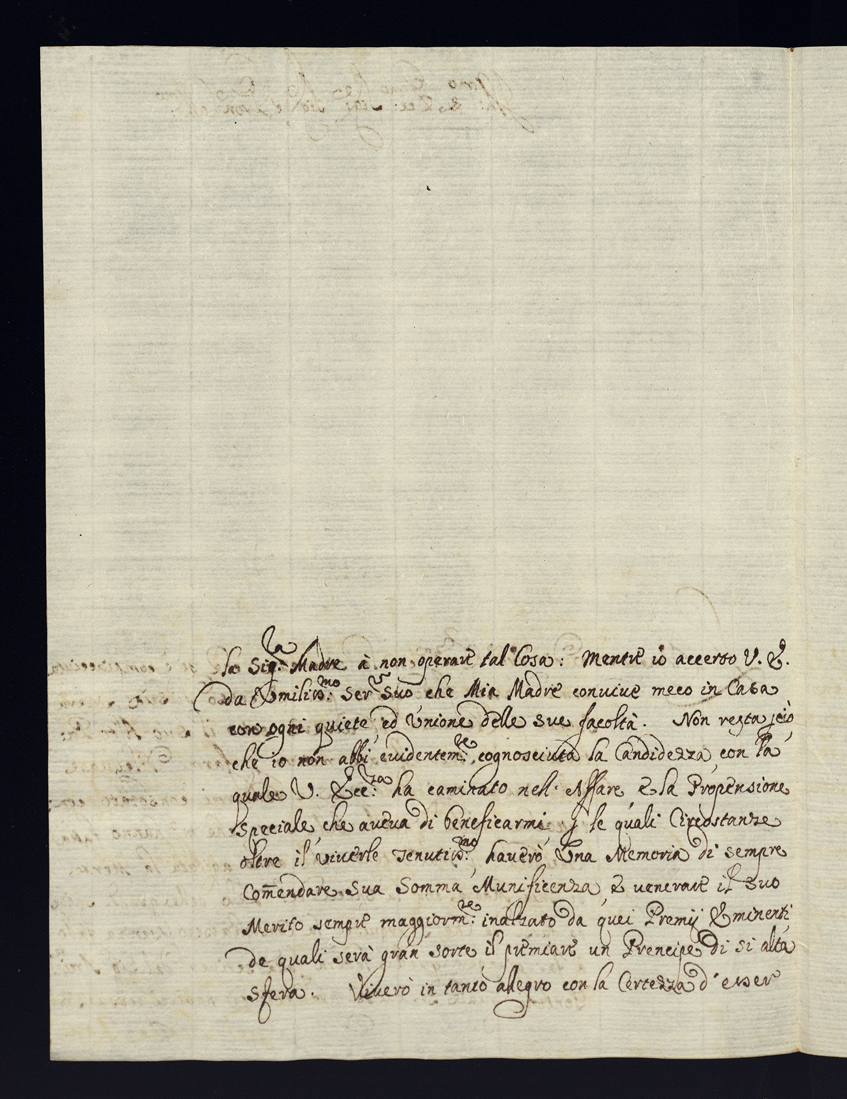 la Sig.ra Madre à non operare tal Cosa: Mentre io accerto V. E.
da Umiliss.mo Ser.r Suo che Mia Madre convive meco in Casa
con ogni quiete, ed Unione delle sue facoltà. Non resta
che io non abbi evidentem.te cognosciuta la Candidezza con la
quale V. Ecc.za ha caminato nell' Affare e la Propensione
speciale che aveva di beneficarmi le quali Circostanze
oltre il viverle Tenutiss.mo haverò Una Memoria di sempre
Com̃endare sua Somma Munificenza e venerare il suo
Merito sempre maggiorm.te inalzato da quei Premij Eminenti
de quali serà gran sorte il premiare un Prencipe di si alta
sfera. Viverò in tanto allegro con la Certezza d'esser